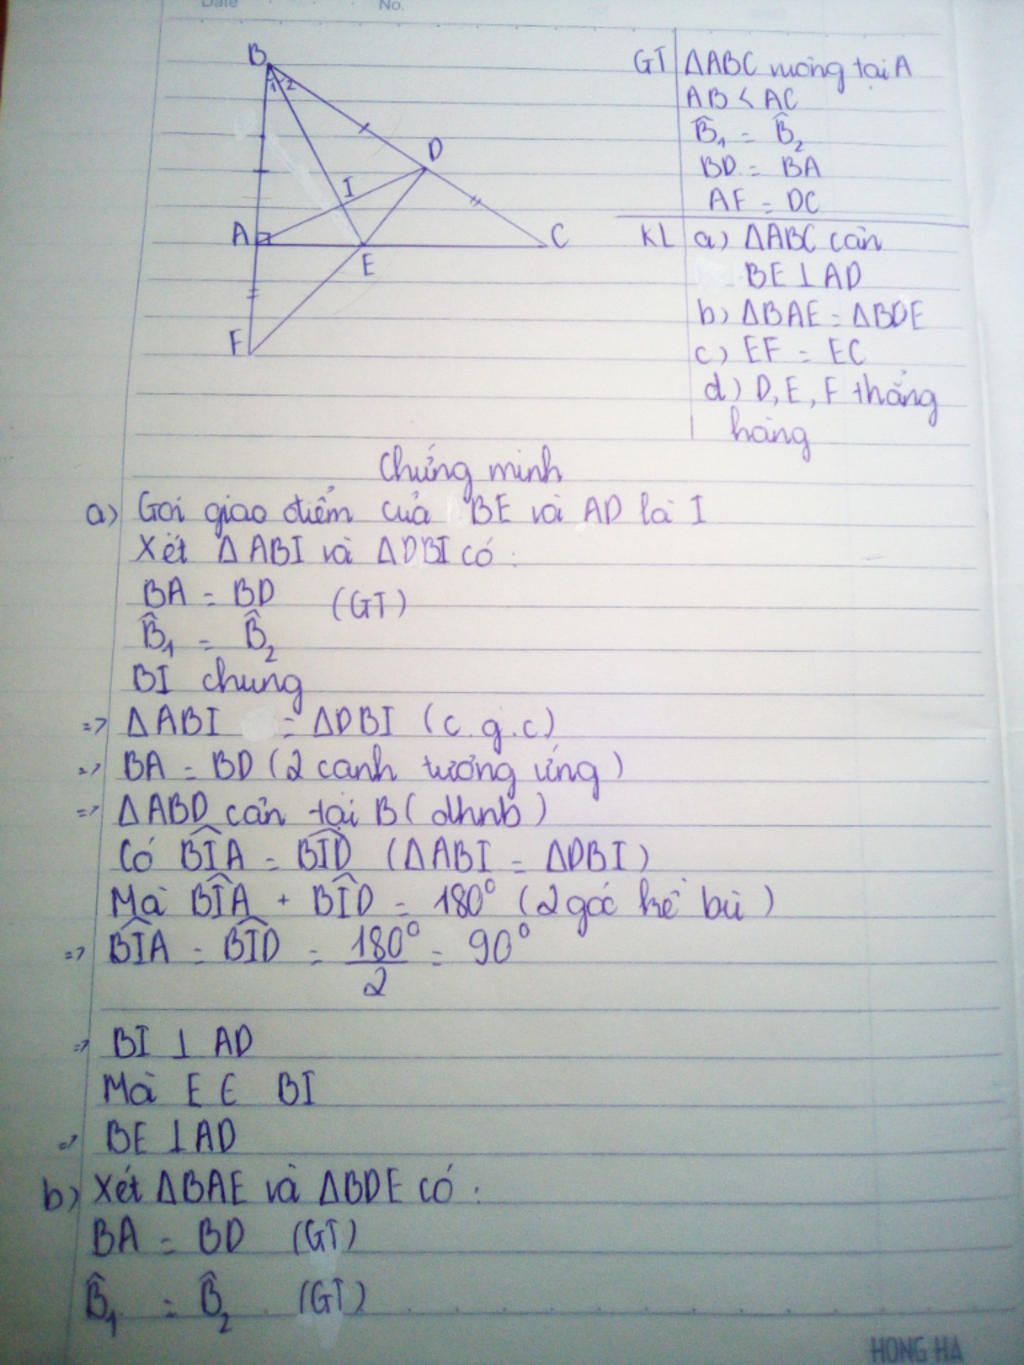 Date No.
B
1 2
D
I
A
E
C
F
GT ΔABC vuông tại A
AB < AC
B̂₁ = B̂₂
BD = BA
AF = DC
KL a) ΔABC cân
BE ⊥ AD
b) ΔBAE = ΔBDE
c) EF = EC
d) D, E, F thẳng
hàng
Chứng minh
a) Gọi giao điểm của BE và AD là I
Xét ΔABI và ΔDBI có:
BA = BD (GT)
B̂₁ = B̂₂
BI chung
=> ΔABI = ΔDBI (c.g.c)
=> BA = BD (2 cạnh tương ứng)
=> ΔABD cân tại B (dhnb)
Có BIA = BID (ΔABI = ΔDBI)
Mà BIA + BID = 180° (2 góc kề bù)
=> BIA = BID = 180°/2 = 90°
=> BI ⊥ AD
Mà E ∈ BI
=> BE ⊥ AD
b) Xét ΔBAE và ΔBDE có:
BA = BD (GT)
B̂₁ = B̂₂ (GT)
HONG HA